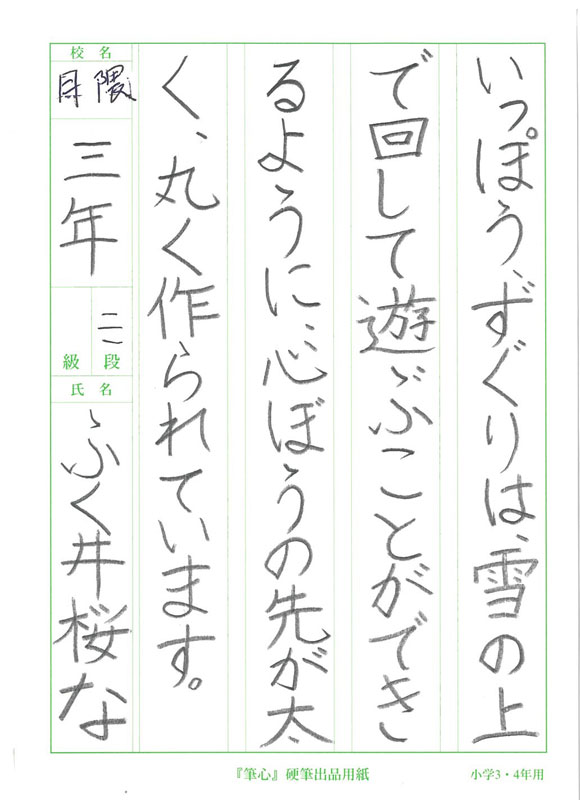 いっぽう、ずぐりは、雪の上
で回して遊ぶことができ
るように、心ぼうの先が太
く、丸く作られています。
校名
月隈
三年
二
級 段
氏名
ふく井桜な
『筆心』硬筆出品用紙
小学3・4年用